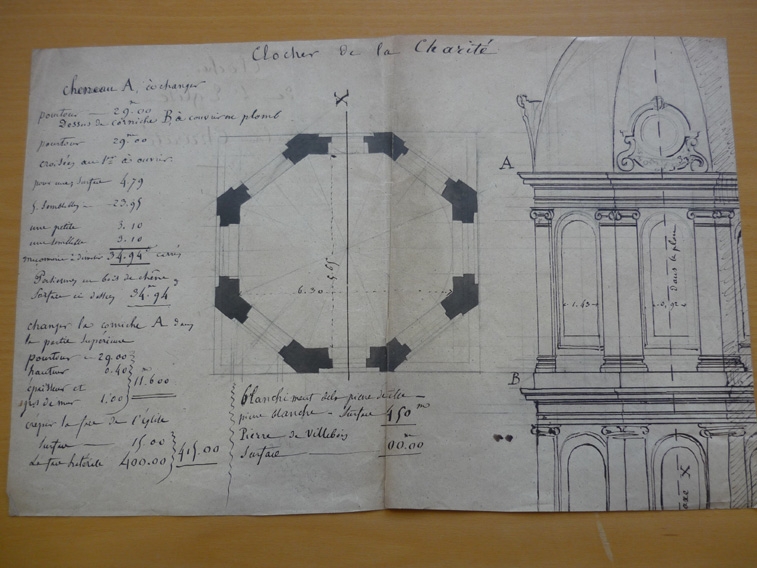 Clocher de la Charité
cheneau A, à changer
pourtour — 29.00
Dessus de corniche B, à couvrir en plomb
pourtour 29.m00
croisées au à ouvrir
pour une surface 4.79
5. semblables — 23.95
une petite 3.10
une semblable 3.10
34.94
Persiennes en bois de chêne
Surface ci dessus 34.m94
changer la corniche A dans
la partie Supérieure
pourtour — 29.00
hauteur 0.40
épaisseur et
de mur 1.00
11.m600
crépir la face de l'église
Surface — 15.00
La face latérale 400.00
415.00
blanchiment de la pierre
pierre blanche — Surface 450 m
Pierre de Villebois
Surface 00.00
X
5.65
6.30
A
B
1.43
2.92
Dans le plan
axe X